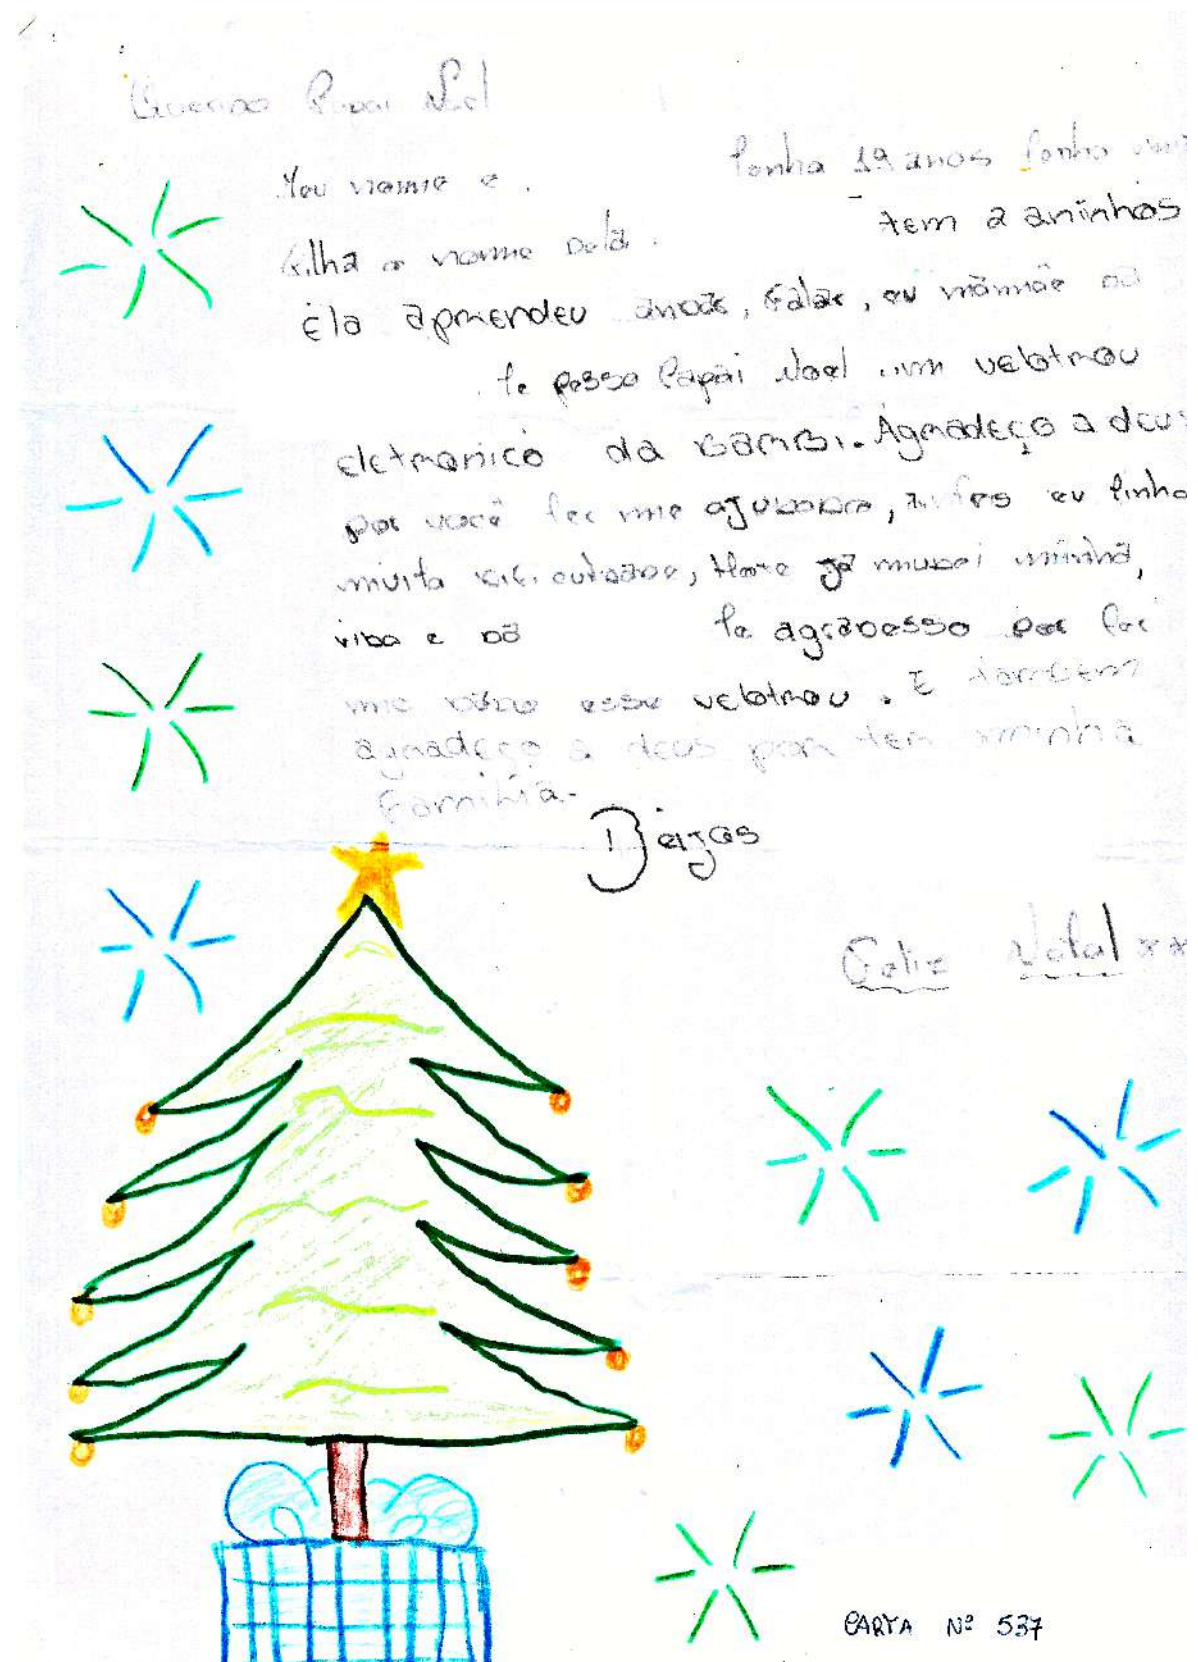 Querido Papai Noel
Meu nome e. Tenho 19 anos Tenho uma
filha o nome dela. tem 2 aninhos
Ela apmendeu andar, falar, eu mãmãe da
te pesso Papai Noel um velotmou
eletmonico da Bambi. Agmadeço a deus
por você ter me ajudado, antes eu tinha
muita dificuldade, Hoje já mudei minha,
vida e dã te agradesso por ter
me dado esse velotmou. E tambem
agmadeço a deus pom tem minha
Familia.
Beijos
Feliz Natal **
CARTA Nº 537